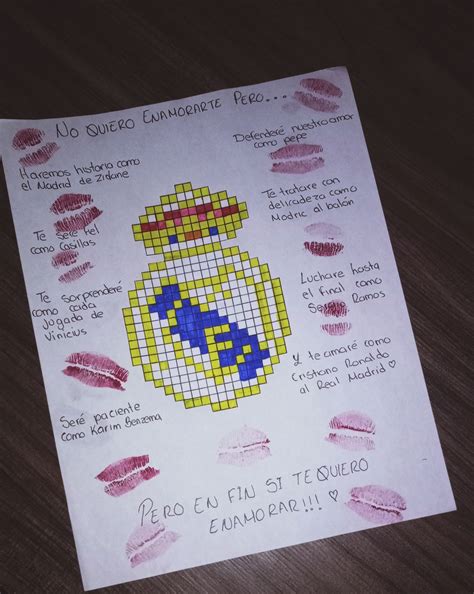 NO QUIERO ENAMORARTE PERO...
Haremos historia como
el Madrid de Zidane
Te seré fiel
como Casillas
Te sorprenderé
como cada
jugada de
Vinicius
Seré paciente
como Karim Benzema
Defenderé nuestro amor
como pepe
Te trataré con
delicadeza como
Modric al balón
Lucharé hasta
el final como
Sergio Ramos
Y te amaré como
Cristiano Ronaldo
al Real Madrid ♡
PERO EN FIN SI TE QUIERO
ENAMORAR!!! ♡